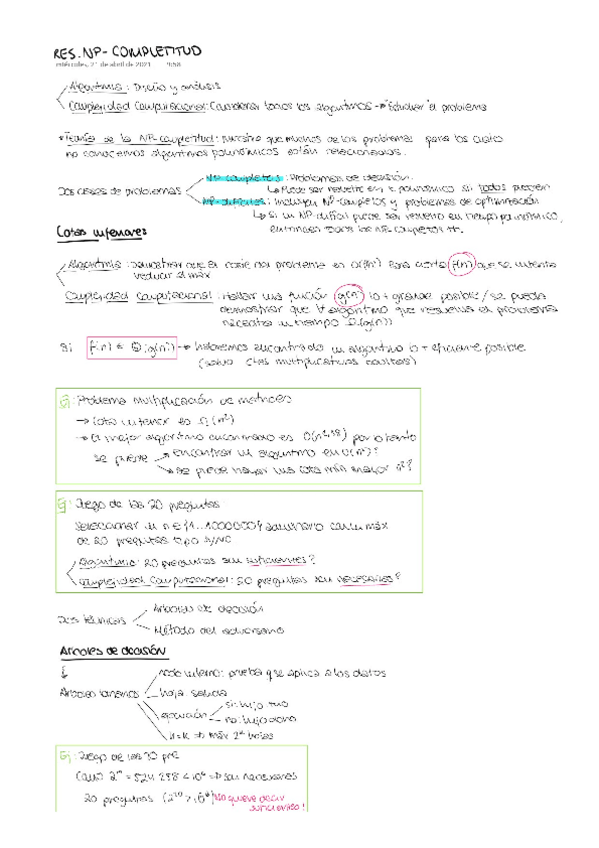 RES. NP- COMPLETITUD
miércoles, 21 de abril de 2021 9:58
Algoritmia: Diseño y análisis
Complejidad Computacional: Considerar todos los algoritmos → Estudiar el problema
Teoría de la NP-completitud: muestra que muchos de los problemas para los cuales
no conocemos algoritmos polinómicos están relacionados.
Dos clases de problemas
NP completos: Problemas de decisión.
Puede ser resuelto en t. polinómico si todos pueden
NP-difíciles: Incluyen NP-completos y problemas de optimización
si un NP-difícil puede ser resuelto en tiempo polinómico,
entonces todos los NP-completos tb.
Cotas inferiores
Algoritmia: Demostrar que el problema en O(f(n)) para cierta f(n) que se intenta
reducir al máx
Complejidad computacional: Hallar una función g(n) lo + grande posible / se pueda
demostrar que ∀ algoritmo que resuelva el problema
necesita un tiempo Ω(g(n))
Si f(n) ∈ Θ(g(n)) → habremos encontrado un algoritmo lo + eficiente posible
(salvo ctes multiplicativas ocultas)
Ej: Problema multiplicación de matrices
→ Cota inferior es Ω(n²)
→ El mejor algoritmo encontrado es por lo tanto
se puede → encontrar un algoritmo en O(n²)?
→ se puede hallar una cota mín mayor n²?
Ej: Juego de las 20 preguntas
Seleccionar un n ∈ {1..1000000} adivinarlo con un máx
de 20 preguntas tipo SI/NO
Algoritmia: 20 preguntas son suficientes?
Complejidad Computacional: 20 preguntas son necesarias?
Dos técnicas
Árboles de decisión
Método del adversario
Árboles de decisión
↓
Árboles binarios
nodo interno: prueba que se aplica a los datos
hoja: salida
ejecución
si: hijo izq
no: hijo dcho
h = k ⇒ máx 2ᵏ hojas
Ej: Juego de las 20 pre
Como 2¹⁹ = 524 288 < 10⁶ ⇒ son necesarias
20 preguntas (2²⁰ > 10⁶) no quiere decir
suficientes!